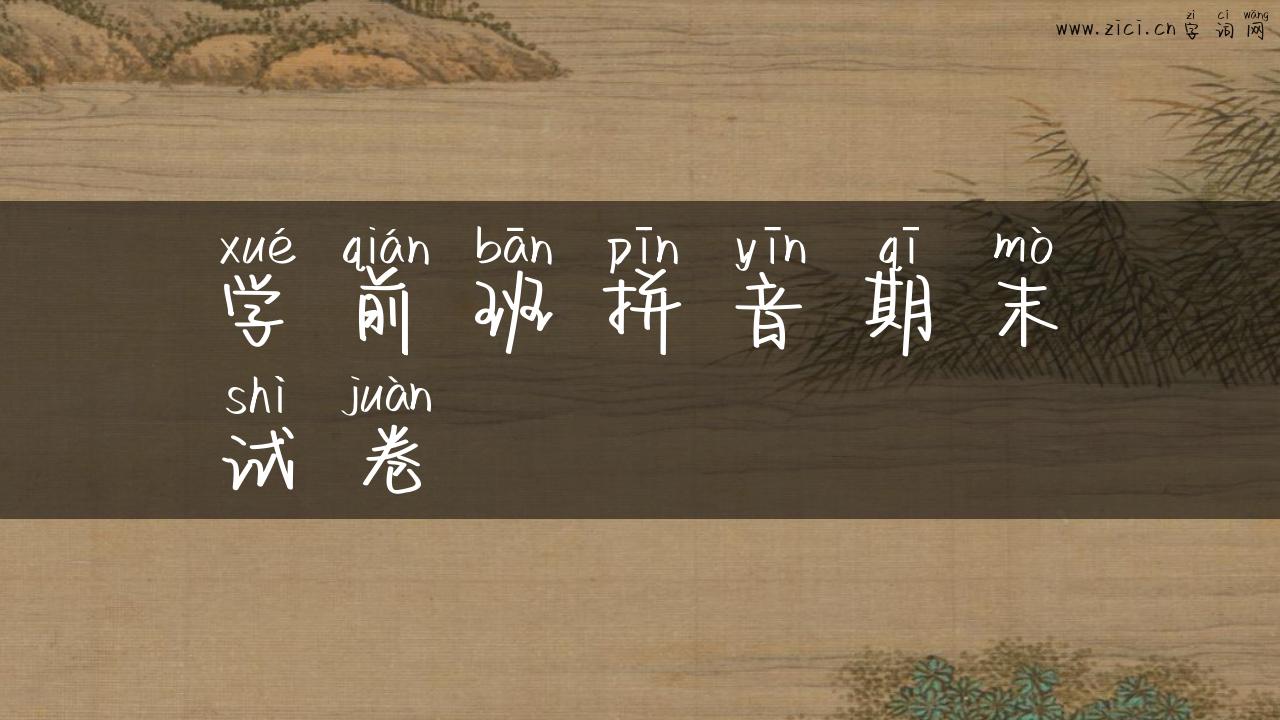 zì cí wǎng
www.zici.cn 字词网
xué qián bān pīn yīn qī mò
学前班拼音期末
shì juàn
试卷